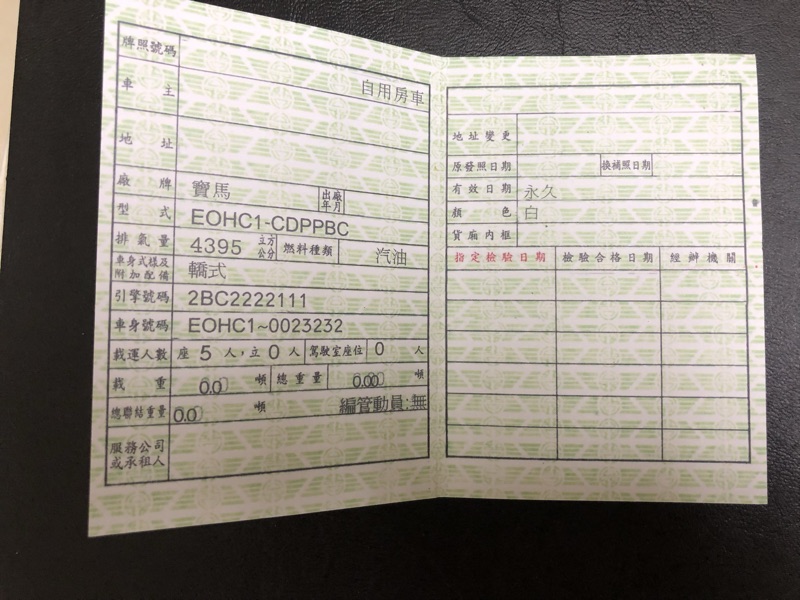 牌照號碼
車主 自用房車
地址
廠牌 寶馬 出廠年月
型式 EOHC1-CDPPBC
排氣量 4395 立方公分 燃料種類 汽油
車身式樣及附加配備 轎式
引擎號碼 2BC2222111
車身號碼 EOHC1~0023232
載運人數 座 5 人,立 0 人 駕駛室座位 0 人
載重 0.0 噸 總重量 0.00 噸
總聯結重量 0.0 噸 編管動員:無
服務公司或承租人
地址變更
原發照日期 換補照日期
有效日期 永久
顏色 白
貨廂內框
指定檢驗日期 檢驗合格日期 經辦機關